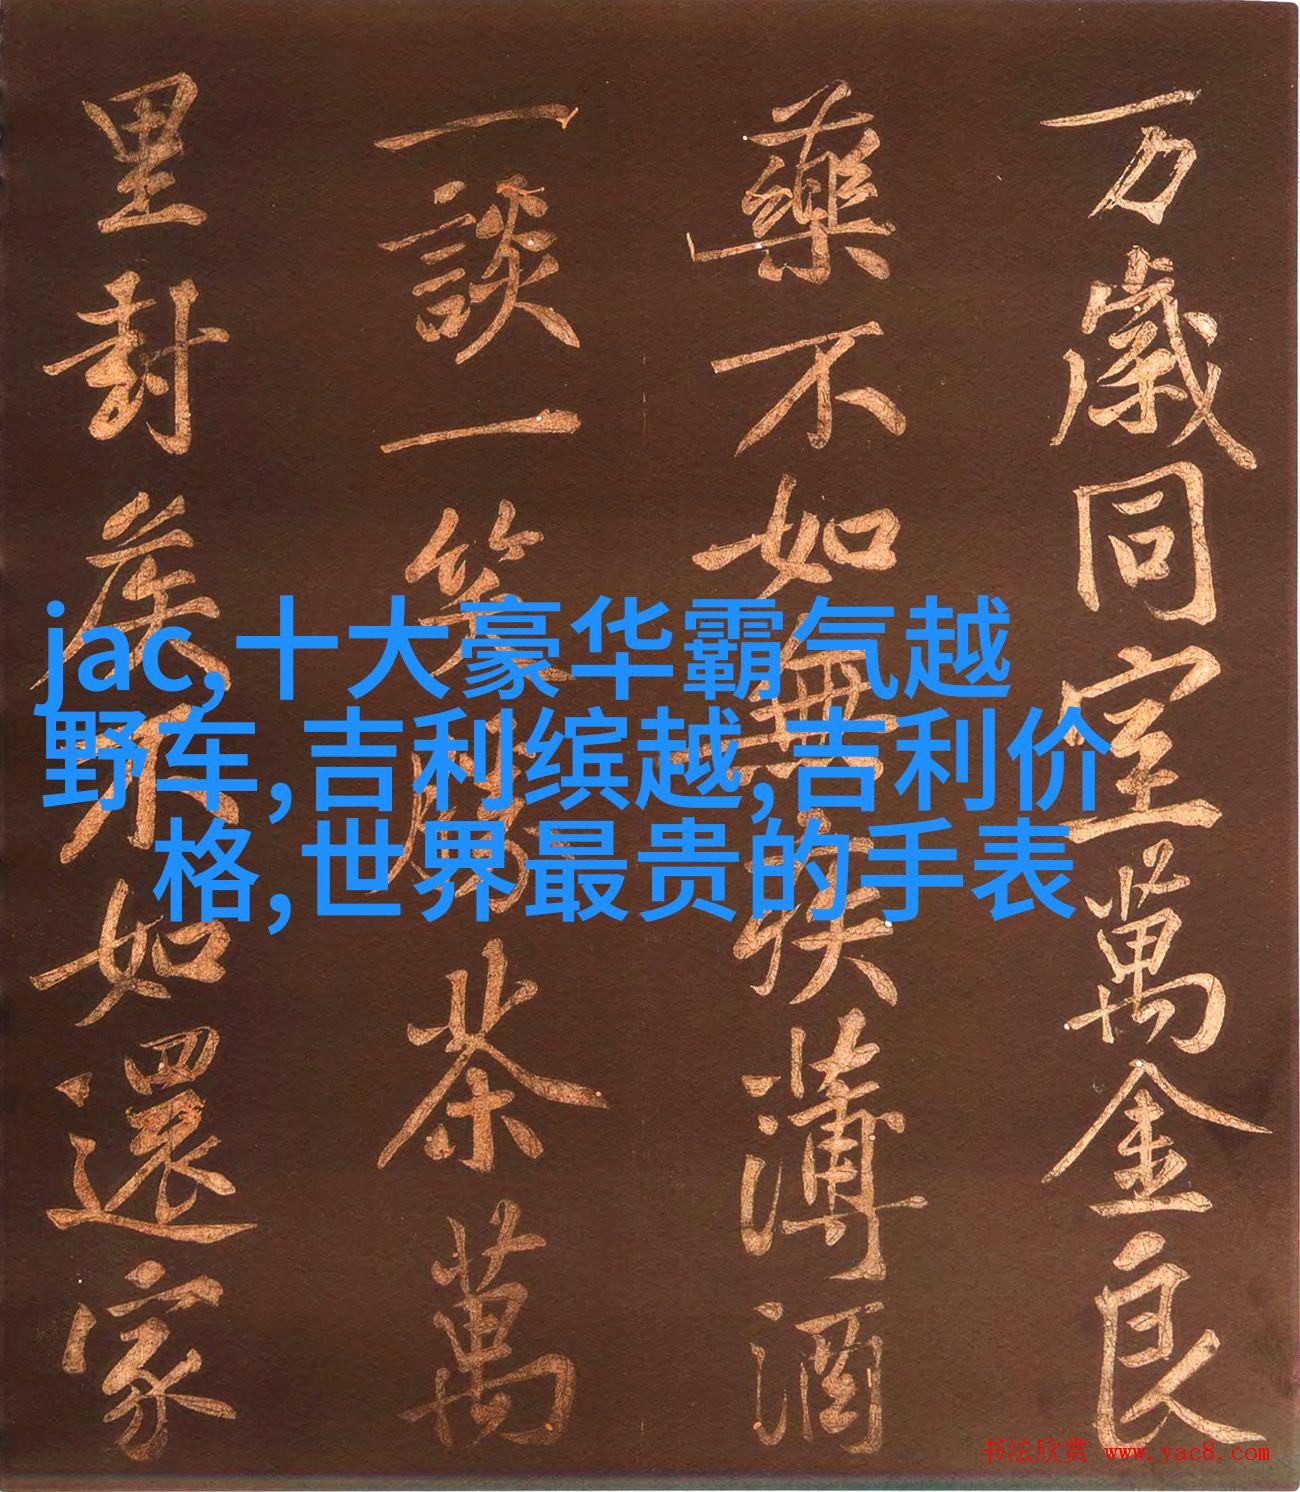 万歲同室萬金良
藥不如無疾薄酒
一談一笑勝茶萬
里封矦不如還家
jac,十大豪华霸气越
野车,吉利缤越,吉利价
格,世界最贵的手表
书法欣赏 www.yac8.com